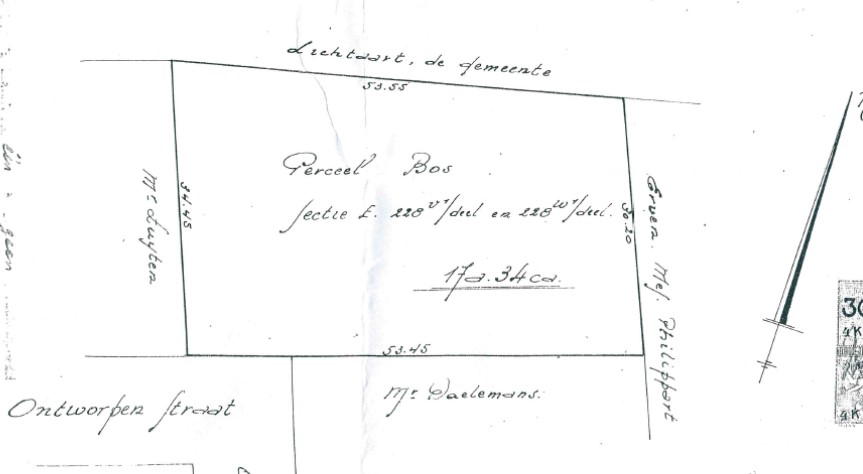 Lichtaart, de gemeente
53.55
Perceel Bos
Sectie E. 228 v¹/deel en 228 w¹/deel.
17a. 34ca.
34.45
Mr Luyten
30.20
Erven Mej. Philippart
53.45
Mr Daelemans.
Ontworpen Straat
30